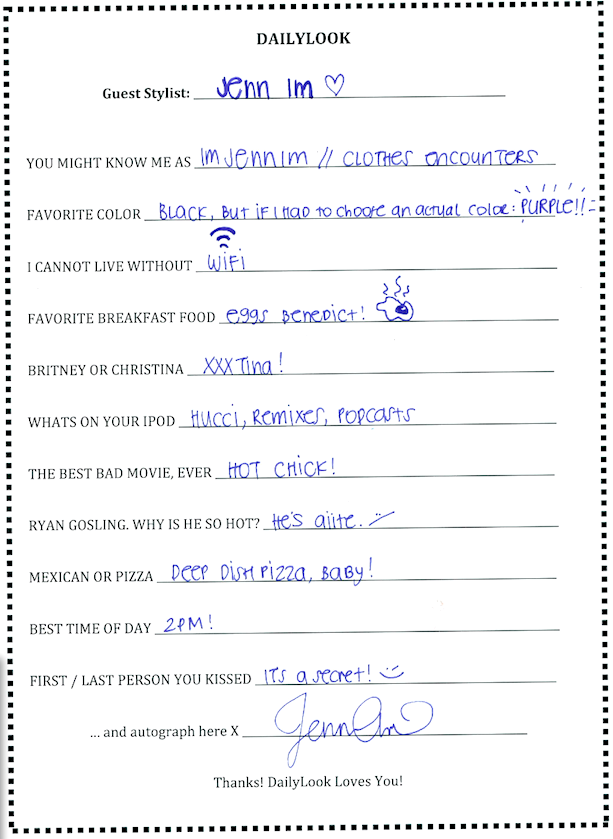 DAILYLOOK
Guest Stylist: Jenn Im ♡
YOU MIGHT KNOW ME AS ImJennIm // CLOTHES ENCOUNTERS
FAVORITE COLOR BLACK, BUT IF I HAD to choose an actual color: PURPLE!!
I CANNOT LIVE WITHOUT WiFi
FAVORITE BREAKFAST FOOD eggs Benedict!
BRITNEY OR CHRISTINA XXXTina!
WHATS ON YOUR IPOD HUCCI, Remixes, PODCASTS
THE BEST BAD MOVIE, EVER HOT CHICK!
RYAN GOSLING. WHY IS HE SO HOT? He's aiite. :/
MEXICAN OR PIZZA DEEP DISH PIZZA, BABY!
BEST TIME OF DAY 2PM!
FIRST / LAST PERSON YOU KISSED ITS a secret! :)
... and autograph here X Jenn Im
Thanks! DailyLook Loves You!